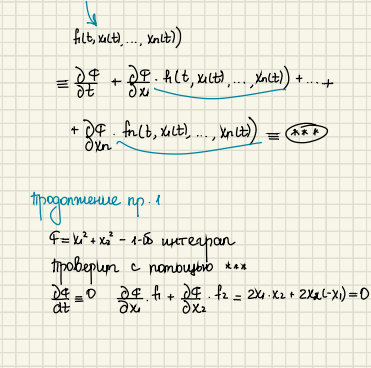 f₁(t, x₁(t), ..., xₙ(t))
≡ ∂Φ/∂t + ∂Φ/∂x₁ · f₁(t, x₁(t), ..., xₙ(t)) + ... +
+ ∂Φ/∂xₙ · fₙ(t, x₁(t), ..., xₙ(t)) ≡ (***)
Продолжение пр. 1
Φ = x₁² + x₂² - 1-ый интеграл
Проверим с помощью ***
∂Φ/∂t ≡ 0 ∂Φ/∂x₁ · f₁ + ∂Φ/∂x₂ · f₂ = 2x₁·x₂ + 2x₂(-x₁) = 0